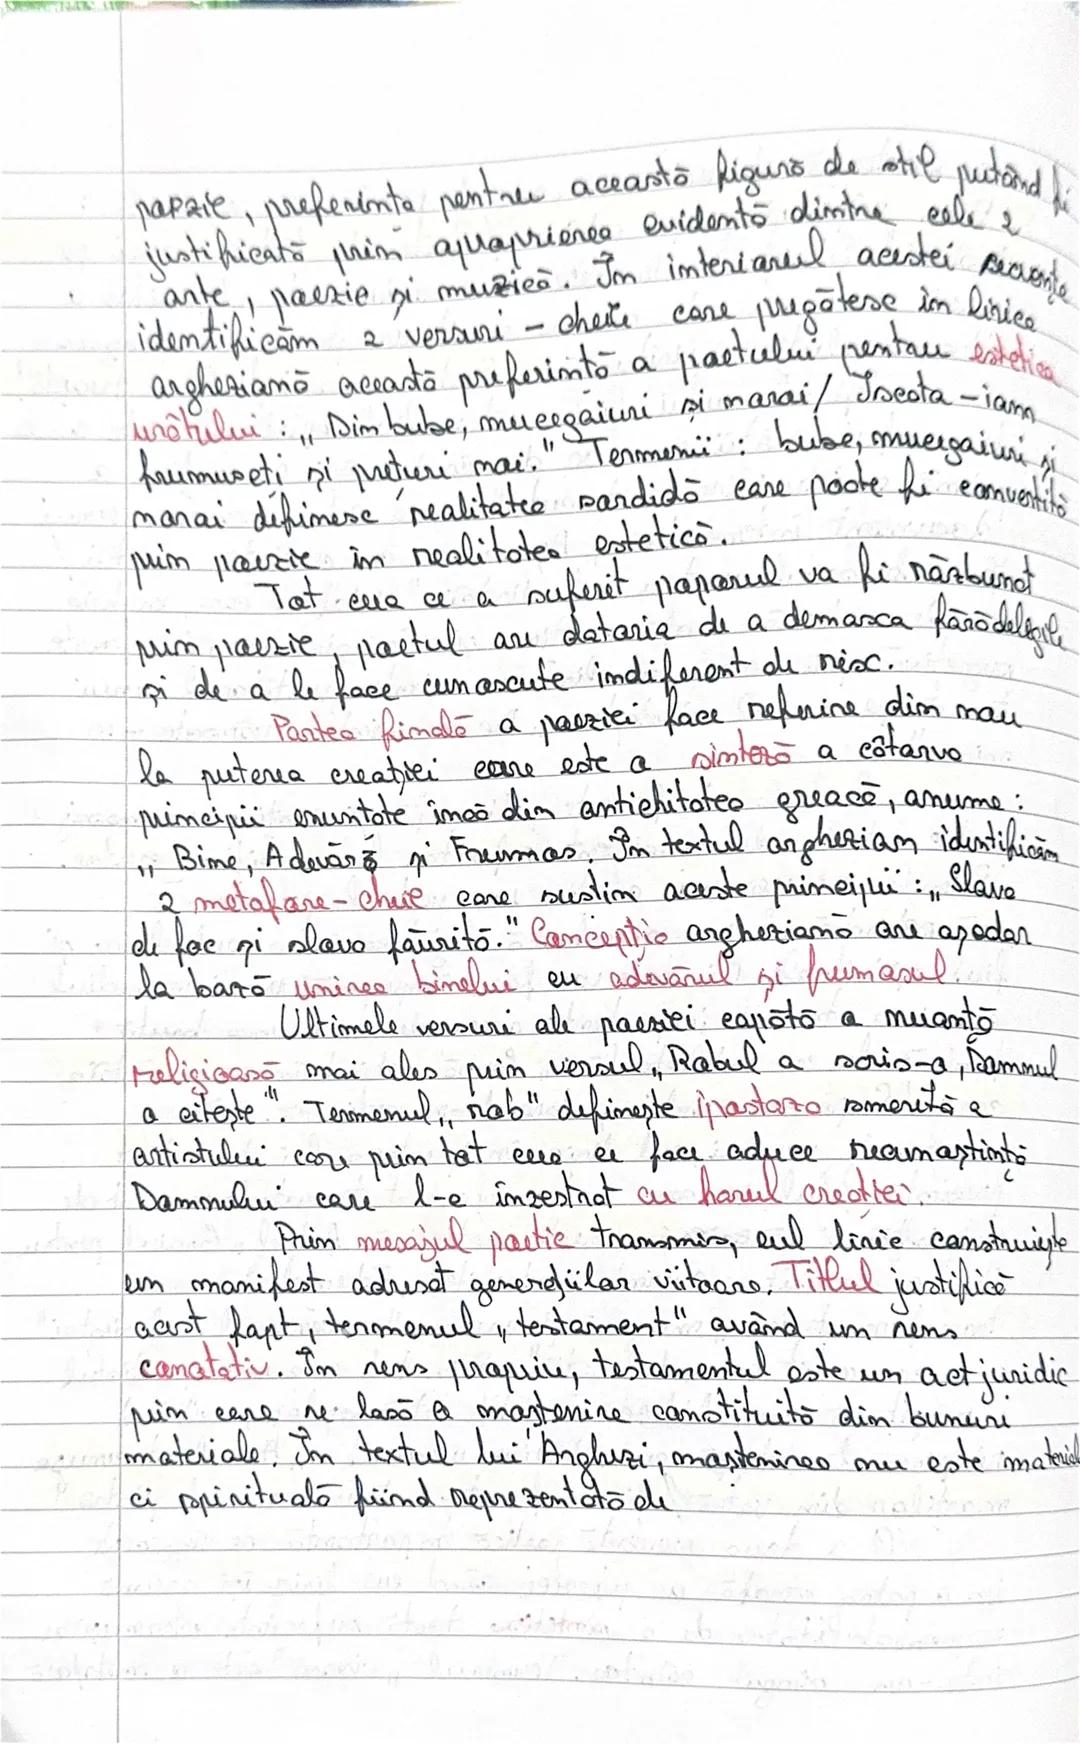 poezie, preferința pentru această figură de stil putând fi
justificată prin apropierea evidentă dintre cele 2
arte, poezie și muzică. În interiorul acestei secvențe
identificăm 2 versuri - cheie care pregătesc în lirica
argheziană această preferință a poetului pentru estetica
urâtului: „Din bube, mucegaiuri și noroi/ Iscat-am
frumuseți și prețuri noi." Termenii: bube, mucegaiuri și
noroi definesc realitatea sordidă care poate fi convertită
prin poezie în realitatea estetică.
Tot ceea ce a suferit poporul va fi răzbunat
prin poezie, poetul are datoria de a demasca fărădelegile
și de a le face cunoscute indiferent de risc.
Partea finală a poeziei face referire din nou
la puterea creației care este o sinteză a câtorva
principii enunțate încă din antichitatea greacă, anume:
„Bine, Adevăr și Frumos. În textul arghezian identificăm
2 metafore-cheie care susțin aceste principii: „Slova
de foc și slova făurită." Concepția argheziană are așadar
la bază unirea binelui cu adevărul și frumosul.
Ultimele versuri ale poeziei capătă o nuanță
religioasă mai ales prin versul „Robul a scris-o, Domnul
o citește". Termenul „rob" definește ipostaza smerită a
artistului care prin tot ceea ce face aduce recunoștință
Domnului care l-a înzestrat cu harul creației.
Prin mesajul poetic transmis, eul liric construiește
un manifest adresat generațiilor viitoare. Titlul justifică
acest fapt, termenul „testament" având un sens
conotativ. În sens propriu, testamentul este un act juridic
prin care se lasă o moștenire constituită din bunuri
materiale. În textul lui Arghezi, moștenirea nu este material
ci spirituală fiind reprezentată de